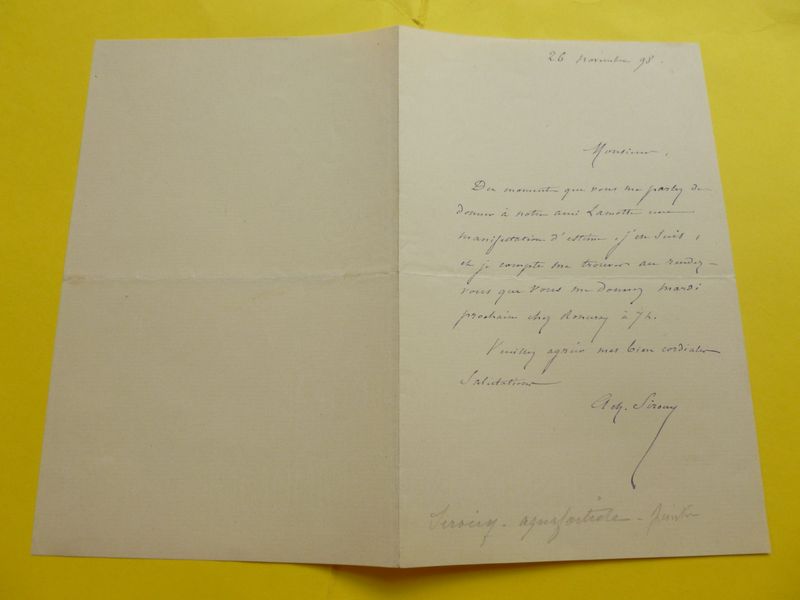 26 novembre 98.
Monsieur,
Du moment que vous me parlez de
donner à notre ami Lamotte une
manifestation d'estime, j'en suis,
et je compte me trouver au rendez-
vous que vous me donnez mardi
prochain chez à 7h.
Veuillez agréer mes bien cordiales
salutations
Ach. Sirouy
Sirouy - aquafortiste - peintre